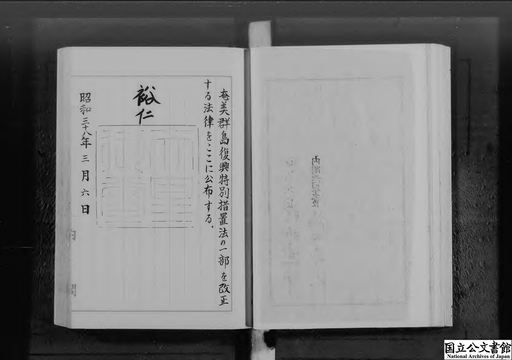 奄美群島復興特別措置法の一部を改正
する法律をここに公布する。
裕仁
昭和三十八年三月六日
国立公文書館
National Archives of Japan